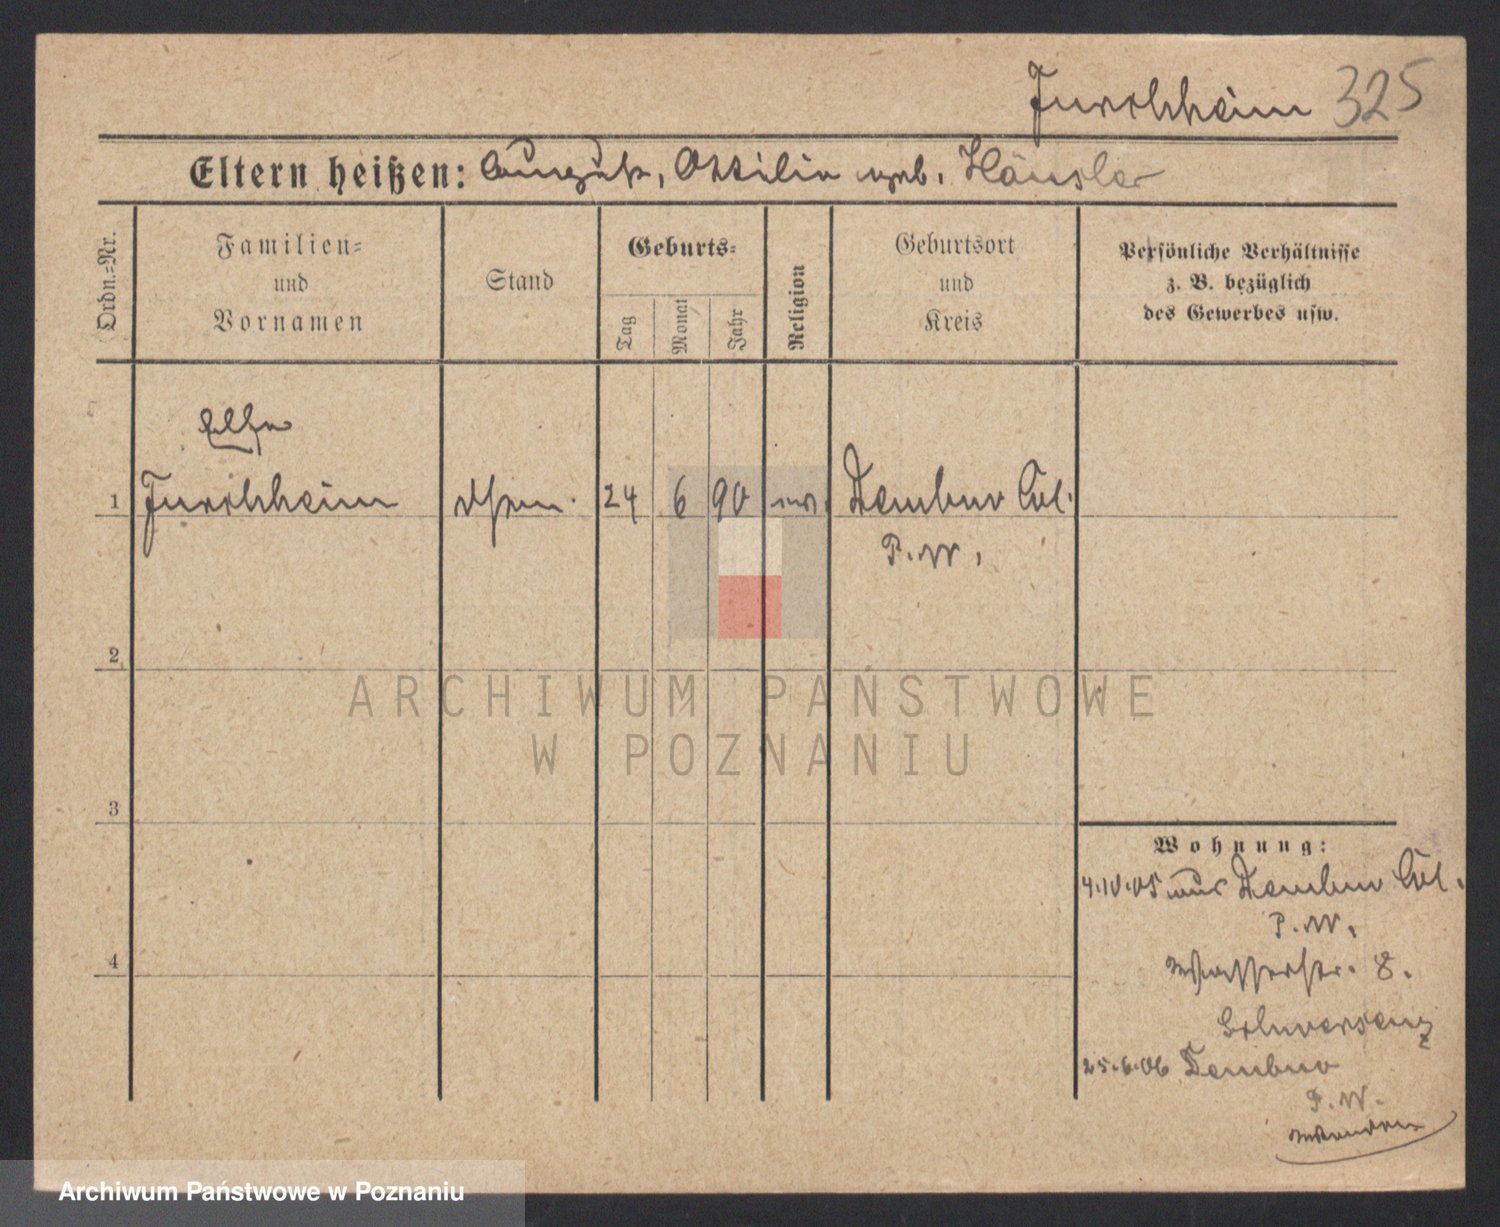 Jurschheim 325
Eltern heißen: August, Ottilie geb. Häusler
Ordn.-Nr.
Familien-
und
Vornamen
Stand
Geburts-
Tag
Monat
Jahr
Religion
Geburtsort
und
Kreis
Persönliche Verhältnisse
z. B. bezüglich
des Gewerbes usw.
Else
1 Jurschheim 24 6 90 ev. Dembno Col.
P. W.
2
3
4
Wohnung:
4.10.05 aus Dembno Col.
P. W.
Wasserstr. 8.
25.6.06 Dembno
P. W.
wenden
ARCHIWUM PAŃSTWOWE
W POZNANIU
Archiwum Państwowe w Poznaniu